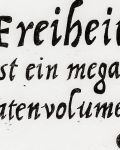 Freihei
st ein mega
atenvolume